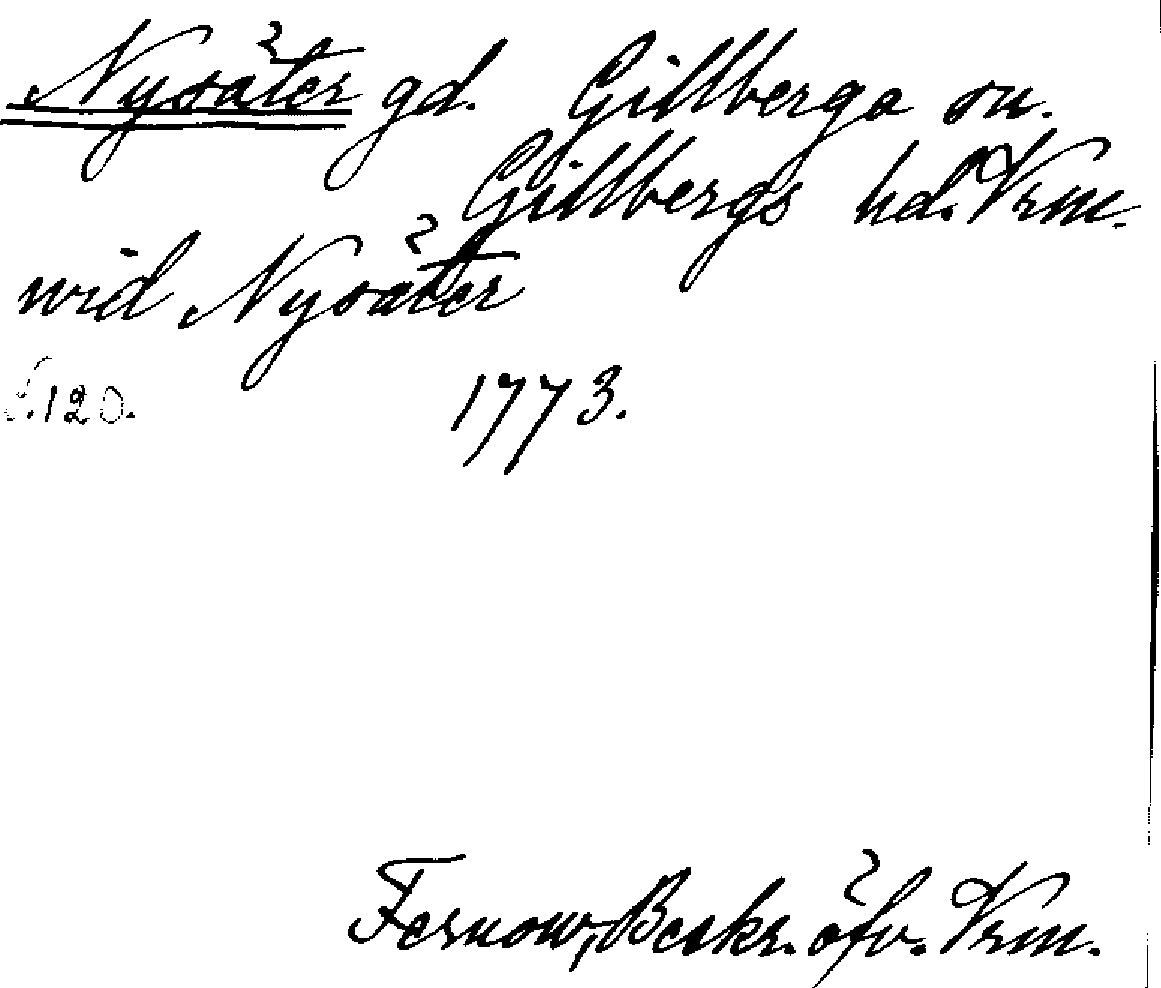 Nysäter gd. Gillberga sn.
Gillbergs hd. Vrm.
wid Nysäter
S. 120. 1773.
Fernow, Beskr. öfv. Vrm.